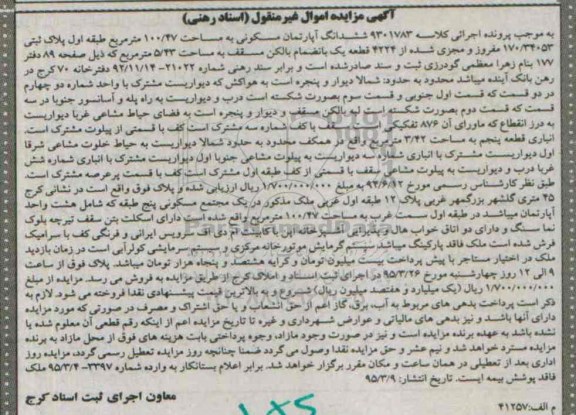 آگهی مزایده اموال غیرمنقول (اسناد رهنی)
به موجب پرونده اجرائی کلاسه ۹۳۰۱۷۸۳ ششدانگ آپارتمان مسکونی به مساحت ۱۰۰/۴۷ مترمربع طبقه اول پلاک ثبتی
۱۷۰/۳۴۰۵۳ مفروز و مجزی شده از ۴۲۲۴ قطعه یک بانضمام بالکن مسقف به مساحت ۵/۴۳ مترمربع که ذیل صفحه ۸۹ دفتر
۱۷۷ بنام زهرا معظمی گودرزی ثبت و سند صادرشده است و برابر سند رهنی شماره ۲۱۰۲۲-۹۲/۱۱/۱۴ دفترخانه ۷۰ کرج در
رهن بانک آینده میباشد محدود به حدود: شمالا دیوار و پنجره است به هواکش که دیواریست مشترک با واحد شماره دو چهارم
در دو قسمت که قسمت اول جنوبی و قسمت سوم بصورت شکسته است درب و دیواریست به راه پله و آسانسور جنوبا در سه
قسمت که قسمت دوم بصورت شکسته است لبه بالکن مسقف و دیوار و پنجره است به فضای حیاط مشاعی غربا دیواریست
به درز انقطاع که ماورای آن ۸۷۶ تفکیکی سقف با کف شماره سه مشترک است کف با قسمتی از پیلوت مشترک است.
انباری قطعه پنجم به مساحت ۳/۴۲ مترمربع واقع در همکف محدود به حدود شمالا دیواریست به حیاط خلوت مشاعی شرقا
اول دیواریست مشترک با انباری شماره دیواریست به پیلوت مشاعی جنوبا اول دیواریست مشترک با انباری شماره شش
غربا درب و دیواریست به پیلوت مشاعی سقف با قسمتی از کف طبقه اول مشترک است کف با قسمت پرعرصه مشترک است.
طبق نظر کارشناس رسمی مورخ ۹۴/۶/۱۲ به مبلغ ۱/۷۰۰/۰۰۰/۰۰۰ ریال ارزیابی شده و پلاک فوق واقع است در نشانی کرج
۴۵ متری گلشهر بزرگمهر غربی پلاک ۱۲ طبقه اول غربی ملک مذکور در یک مجتمع مسکونی پنج طبقه که شامل هشت واحد
آپارتمان میباشد در طبقه اول سمت غرب به مساحت ۱۰۰/۴۷ مترمربع واقع شده است دارای اسکلت بتن سقف تیرچه بلوک
نما سنگ و دارای دو اتاق خواب هال پذیرائی آشپزخانه اپن با کابینت ام دی اف سرویس ایرانی و فرنگی کف با سرامیک
فرش شده است ملک فاقد پارکینگ میباشد سیستم گرمایش موتورخانه مرکزی و سیستم سرمایشی کولرآبی است در زمان بازدید
ملک در اختیار مستاجر با پیش پرداخت بیست میلیون تومان و کرایه هشتصد و پنجاه هزار تومان میباشد. پلاک فوق از ساعت
۹ الی ۱۲ روز چهارشنبه مورخ ۹۵/۳/۲۶ در اجرای ثبت اسناد و املاک کرج از طریق مزایده به فروش می رسد. مزایده از مبلغ
۱/۷۰۰/۰۰۰/۰۰۰ ریال (یک میلیارد و هفتصد میلیون ریال) شروع و به بالاترین قیمت پیشنهادی نقدا فروخته می شود. لازم به
ذکر است پرداخت بدهی های مربوط به آب، برق، گاز اعم از حق انشعاب و یا حق اشتراک و مصرف در صورتی که مورد مزایده
دارای آنها باشد و نیز بدهی های مالیاتی و عوارض شهرداری و غیره تا تاریخ مزایده اعم از اینکه رقم قطعی آن معلوم شده یا
نشده باشد به عهده برنده مزایده است و نیز در صورت وجود مازاد، وجوه پرداختی بابت هزینه های فوق از محل مازاد به برنده
مزایده مسترد خواهد شد و نیم عشر و حق مزایده نقدا وصول می گردد ضمنا چنانچه روز مزایده تعطیل رسمی گردد، مزایده روز
اداری بعد از تعطیلی در همان ساعت و مکان مقرر برگزار خواهد شد. برابر اعلام بستانکار به وارده شماره ۳۳۹۷-۹۵/۳/۴ ملک
فاقد پوشش بیمه ایست. تاریخ انتشار: ۹۵/۳/۹
معاون اجرای ثبت اسناد کرج
م الف:۴۱۲۵۷